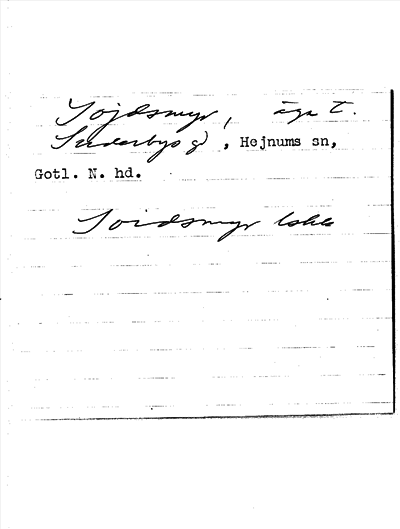 Sojdsmyr, äga t.
Suderbys gd, Hejnums sn,
Gotl. N. hd.
Soidsmyr